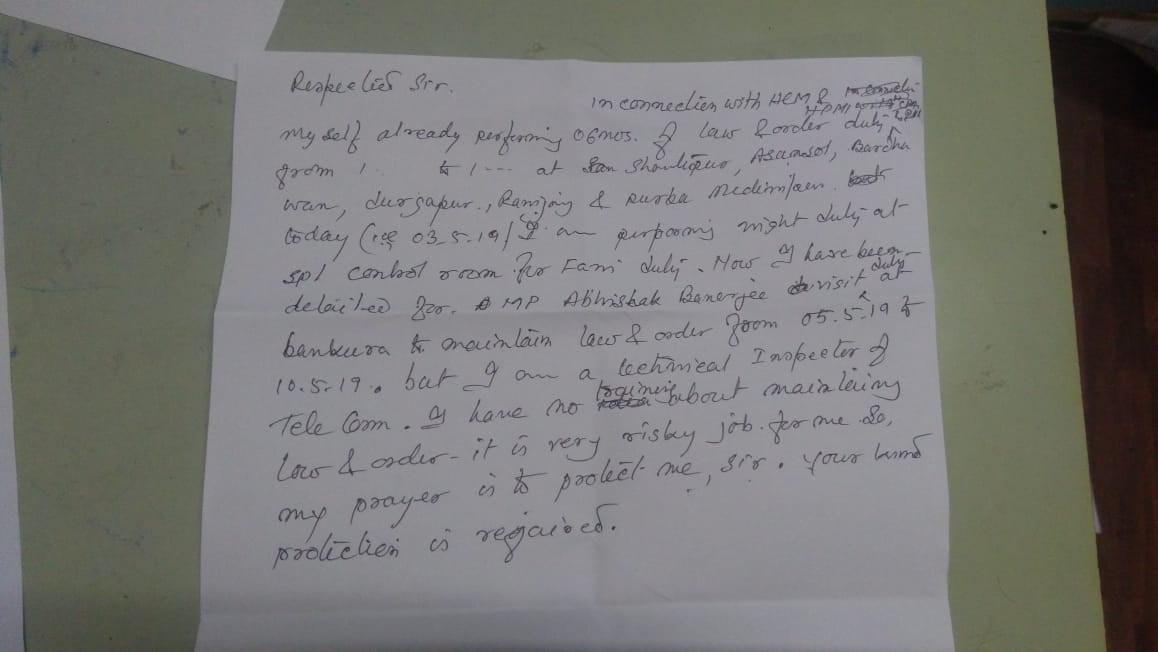 Respected Sir.
In connection with HCM &
HPM
my self already performing 06 nos. of law & order duty
from 1 to 1 --- at Shantipur, Asansol, Bardha
wan, durgapur., Ranigonj & Purba Medinipur.
today (ie 03.5.19) I am perforing night duty at
spl control room for Fani duty. Now I have been
detailed for. MP Abhishak Banerjee visit duty at
bankura to maintain law & order from 05.5.19 to
10.5.19. but I am a technical Inspector of
Tele Com. I have no training about maintaining
law & order - it is very risky job for me. So,
my prayer is to protect me, sir. your kind
protection is required.